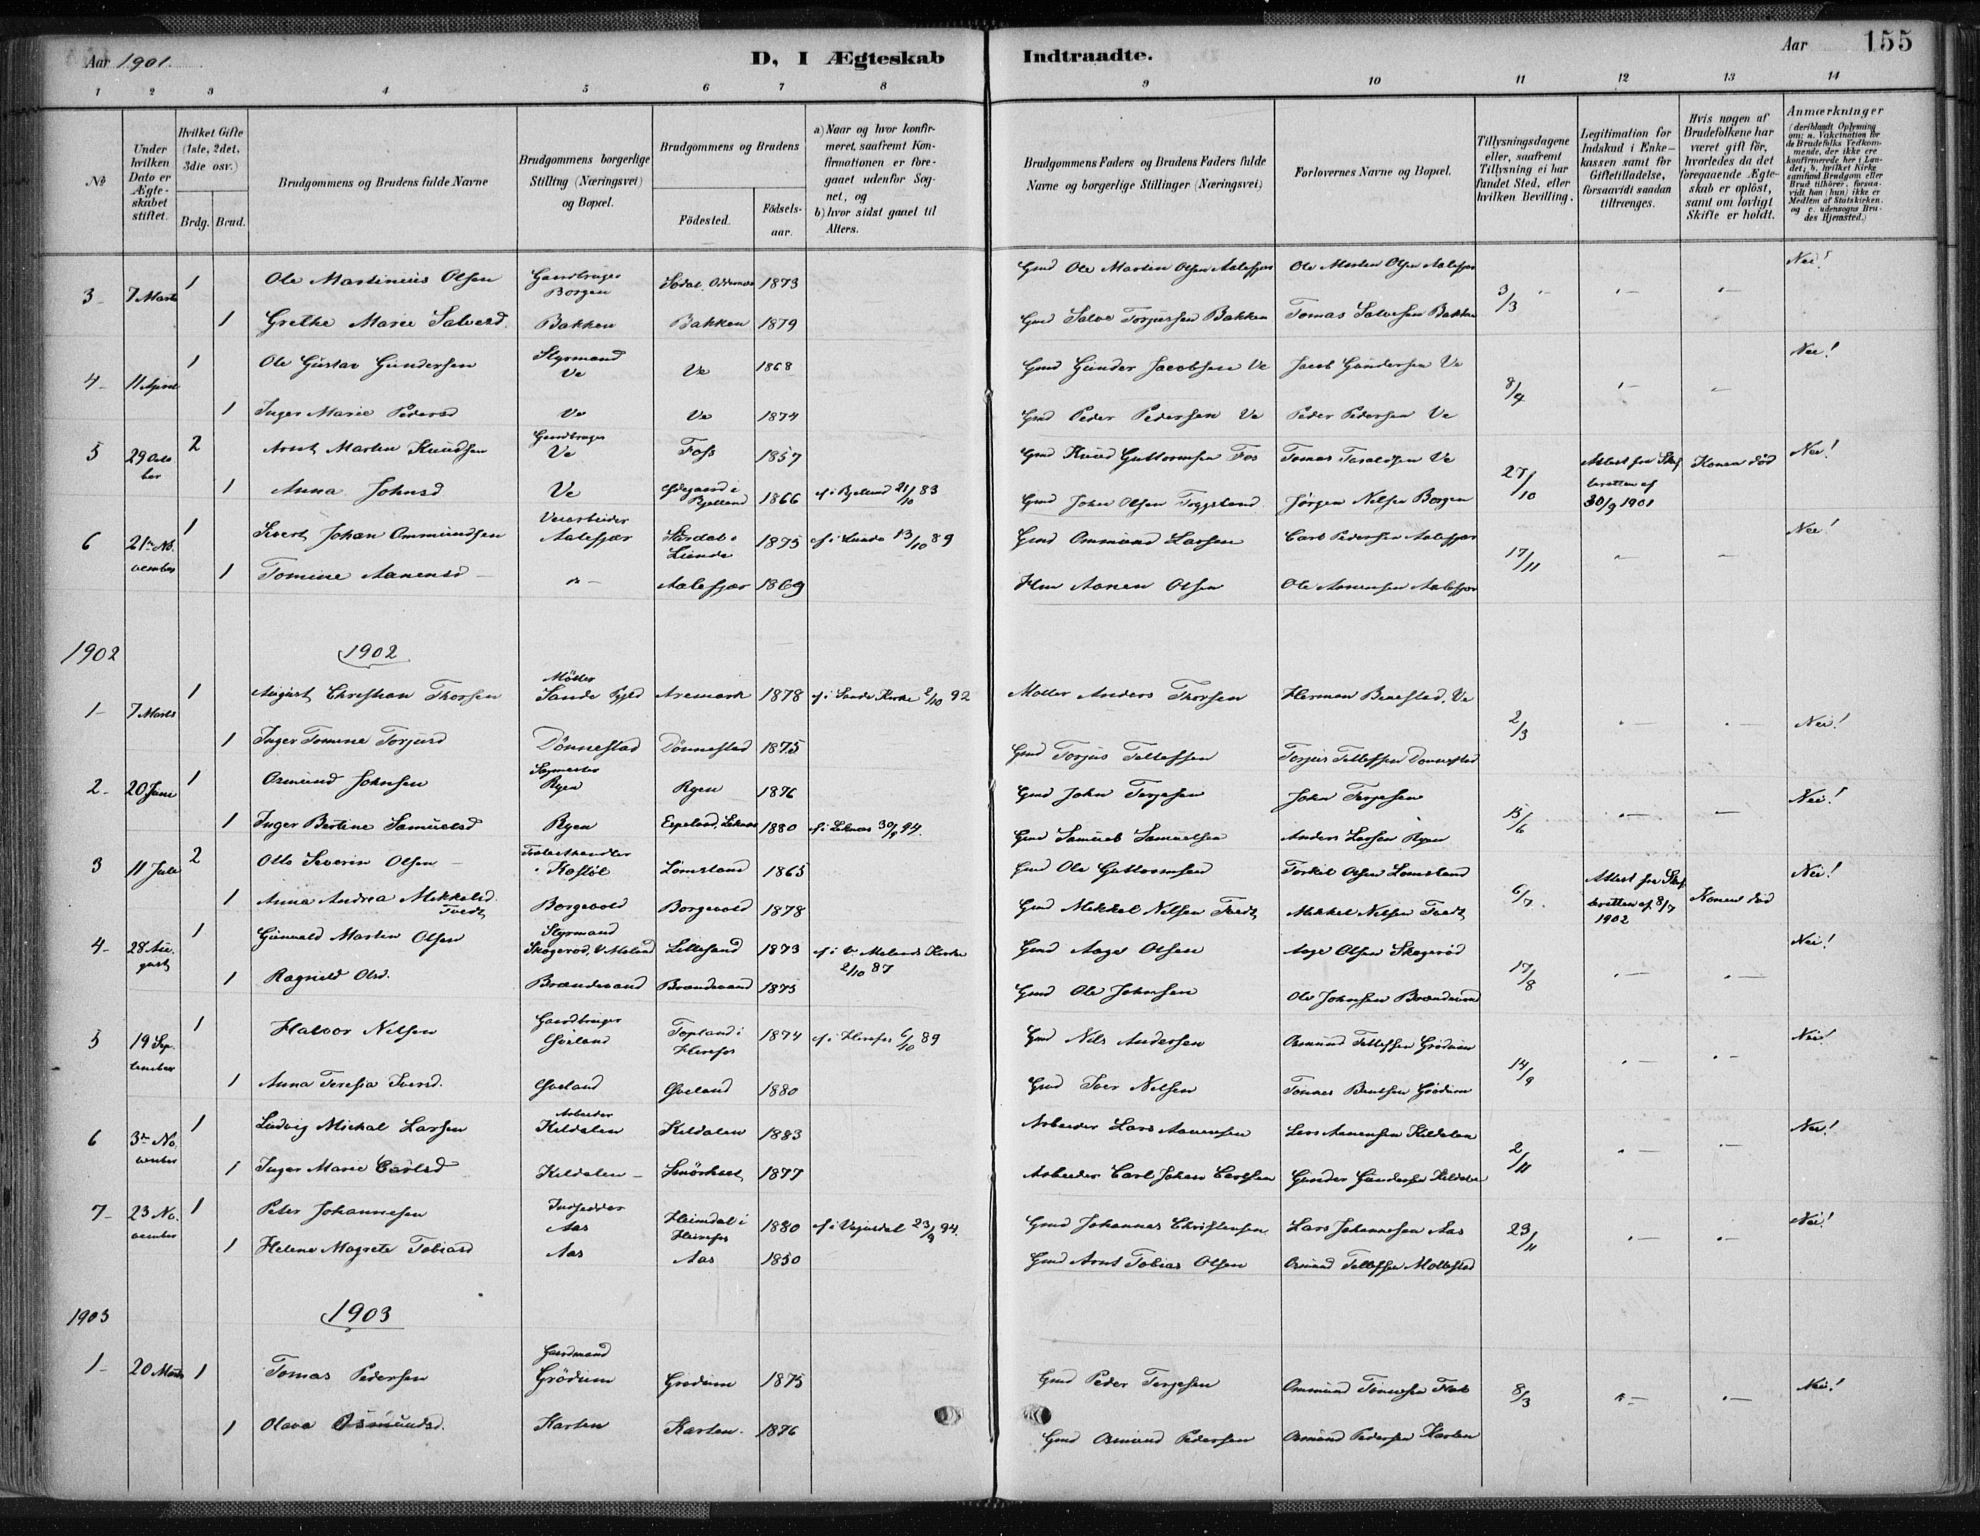 Aar 1901. D, I Ægteskab Indtraadte. Aar 155
1 2 3 4 5 6 7 8 9 10 11 12 13 14
№
Under hvilken Dato er Ægteskabet stiftet.
Hvilket Gifte (1ste, 2det, 3die osv.)
Brdg. Brud.
Brudgommens og Brudens fulde Navne
Brudgommens borgerlige Stilling (Næringsvei) og Bopæl.
Brudgommens og Brudens
Fødested.
Fødselsaar.
a) Naar og hvor konfirmeret, saafremt Konfirmationen er foregaaet udenfor Sognet, og
b) hvor sidst gaaet til Alters.
Brudgommens Faders og Brudens Faders fulde Navne og borgerlige Stillinger (Næringsvei)
Forlovernes Navne og Bopæl.
Tillysningsdagene eller, saafremt Tillysning ei har fundet Sted, efter hvilken Bevilling.
Legitimation for Indskud i Enkekassen samt for Giftetilladelse, forsaavidt saadan tiltrænges.
Hvis nogen af Brudefolkene har været gift før, hvorledes da det foregaaende Ægteskab er opløst, samt om lovligt Skifte er holdt.
Anmærkninger
(deriblandt Oplysning om: a. Vakcination for de Brudefolks Vedkommende, der ikke ere konfirmerede her i Landet; b. hvilket Kirkesamfund Brudgom eller Brud tilhører, forsaavidt han (hun) ikke er Medlem af Statskirken. og c. udensogns Brudes Hjemsted.)
3- 7 Marts 1 Ole Martinius Olsen Gaardbruger Borgen Sødal, Oddernes 1873 Gmd Ole Martin Olsen Aalefjær Ole Martin Olsen Aalefjær 3/3 "- "- "- Nei!
1 Grethe Marie Salvesd. Bakken Bakken 1879 Gmd Salve Torjussen Bakken Tomas Salvesen Bakken
4- 11 April 1 Ole Gustav Gundersen Styrmand Ve Ve 1868 Gmd Gunder Jacobsen Ve Jacob Gundersen Ve 8/4 "- "- Nei!
1 Inger Marie Pedersd Ve Ve 1874 Gmd Peder Pedersen Ve Peder Pedersen Ve
5 29 October 2 Arnt Martin Knudsen Gaardbruger Ve Foss 1857 Gmd Knud Guttormsen Fos Tomas Ve 27/10 Attest fra Skifteretten af 30/9 1901 Konen død Nei!
1 Anna Johnsd Ve Ødegaard i Bjelland 1866 cf i Bjelland 21/10 83 Gmd John Olsen Jørgen Nilsen Borgen
6 21de November 1 Sivert Johan Ommundsen Veiarbeider Aalefjær i Lunde 1875 cf i Lunde 13/10 89 Gmd Ommund Larsen Carl Pedersen Aalefjær 17/11 "- "- Nei!
1 Tomine Aanensd - "- Aalefjær 1869 Hmd Aanen Olsen Ole Aanensen Aalefjær
1902 1902
1- 7 Marts 1 August Christian Thorsen Møller Sande Aremark 1878 cf i Sande Kirke 2/10 92 Møller Anders Thorsen Herman Benestad, Ve 2/3 "- "- Nei!
1 Inger Tomine Torjusd Dønnestad Dønnestad 1875 Gmd Torjus Tellefsen Torjus Tellefsen Dønnestad
2- 20 Juni 1 Osmund Johnsen Sagmester Ryen Ryen 1876 Gmd John Terjesen John Terjesen 15/6 "- "- Nei!
1 Inger Bertine Samuelsd Ryen Espeland, Leknes 1880 cf i Leknes 30/9 94. Gmd Samuel Samuelsen Anders Larsen Ryen
3 11 Juli 2 Otto Severin Olsen - Kostøl Lømsland 1865 Gmd Ole Guttormsen Torkel Olsen Lømsland 6/7. Attest fra Skifteretten af 8/7 1902 Konen død Nei!
1 Anna Andrea Mekkelsd. Tvedt Borgevold Borgevold 1878 Gmd Mekkel Nilsen Tvedt Mekkel Nilsen Tvedt
4- 28 August 1 Gunvald Martin Olsen Styrmand Skogerød, V. Moland Lillesand 1873 cf i V. Molands Kirke 2/10 87 Gmd Aage Olsen Aage Olsen Skogerød 17/8 "- "- Nei!
1 Ragnild Olsd. Brændevand Brændevand 1875 Gmd Ole Johnsen Ole Johnsen Brændevand
5 19 September 1 Halvor Nilsen Gaardbruger Øveland Topland i Herefos 1874 cf i Herefos 6/10 89 Gmd Nils Andersen Osmund Tellefsen Grødum 14/9 "- "- Nei!
1 Anna Teresia Iversd. Øveland Øveland 1880 Gmd Iver Nilsen Tønnes Bentsen Grødum
6 3de November 1 Ludvig Mickal Larsen Arbeider Kildalen Kildalen 1883 Arbeider Lars Aanensen Lars Aanensen Kildalen 2/11 "- "- Nei!
1 Inger Marie Carlsd Kildalen - 1877 Arbeider Carl Johan Carlsen Gunder Gundersen Kildalen
7- 23 November 1 Peter Johannesen Indsidder Aas Heimdal i Herefos 1880 cf i Vegusdal 23/9 94. Gmd Johannes Christensen Lars Johannesen Aas 23/11 "- "- Nei!
1 Helene Magrete Tobiasd Aas Aas 1850 Gmd Arnt Tobias Olsen Osmund Tellefsen Mollestad
1903 1903
1- 20 Marts 1 Tomas Pedersen Gaardmand Grødum Grødum 1875 Gmd Peder Terjesen Ommund 8/3 "- "- Nei!
1 Olava Osmundsd. Karten Karten. 1876 Gmd Osmund Pedersen Osmund Pedersen Karten